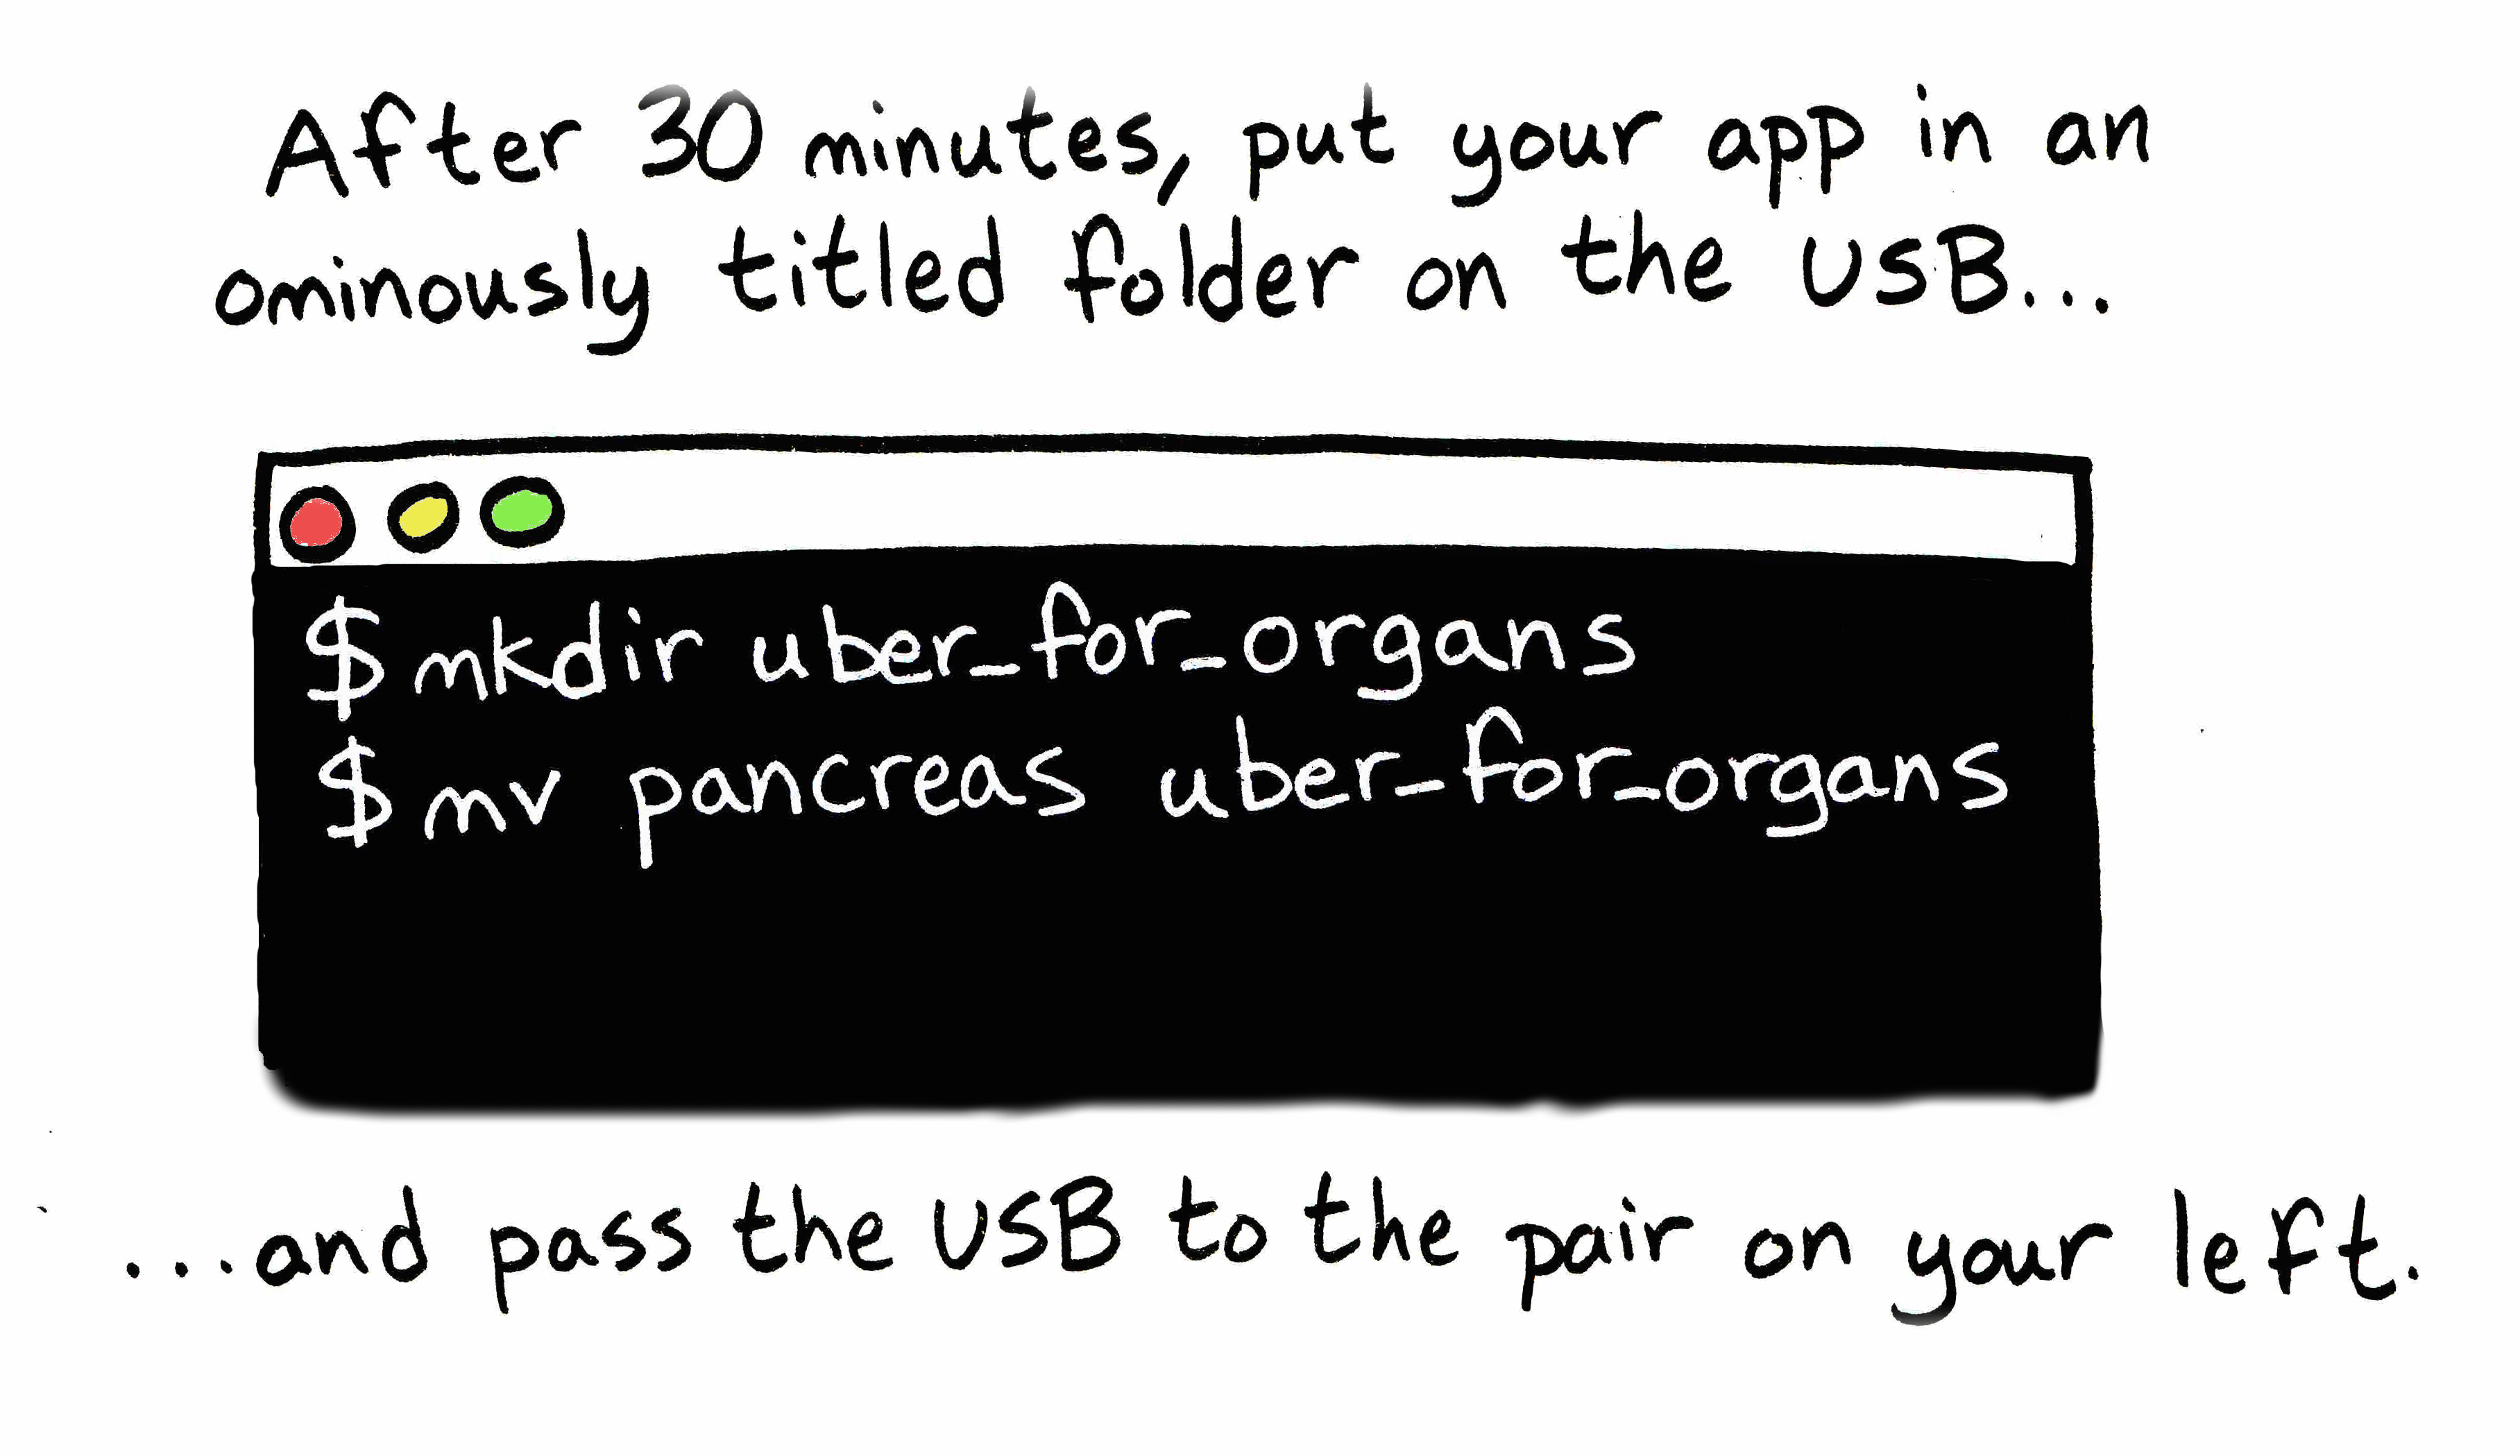 After 30 minutes, put your app in an
ominously titled folder on the USB...
$ mkdir uber_for_organs
$ mv pancreas uber_for_organs
...and pass the USB to the pair on your left.